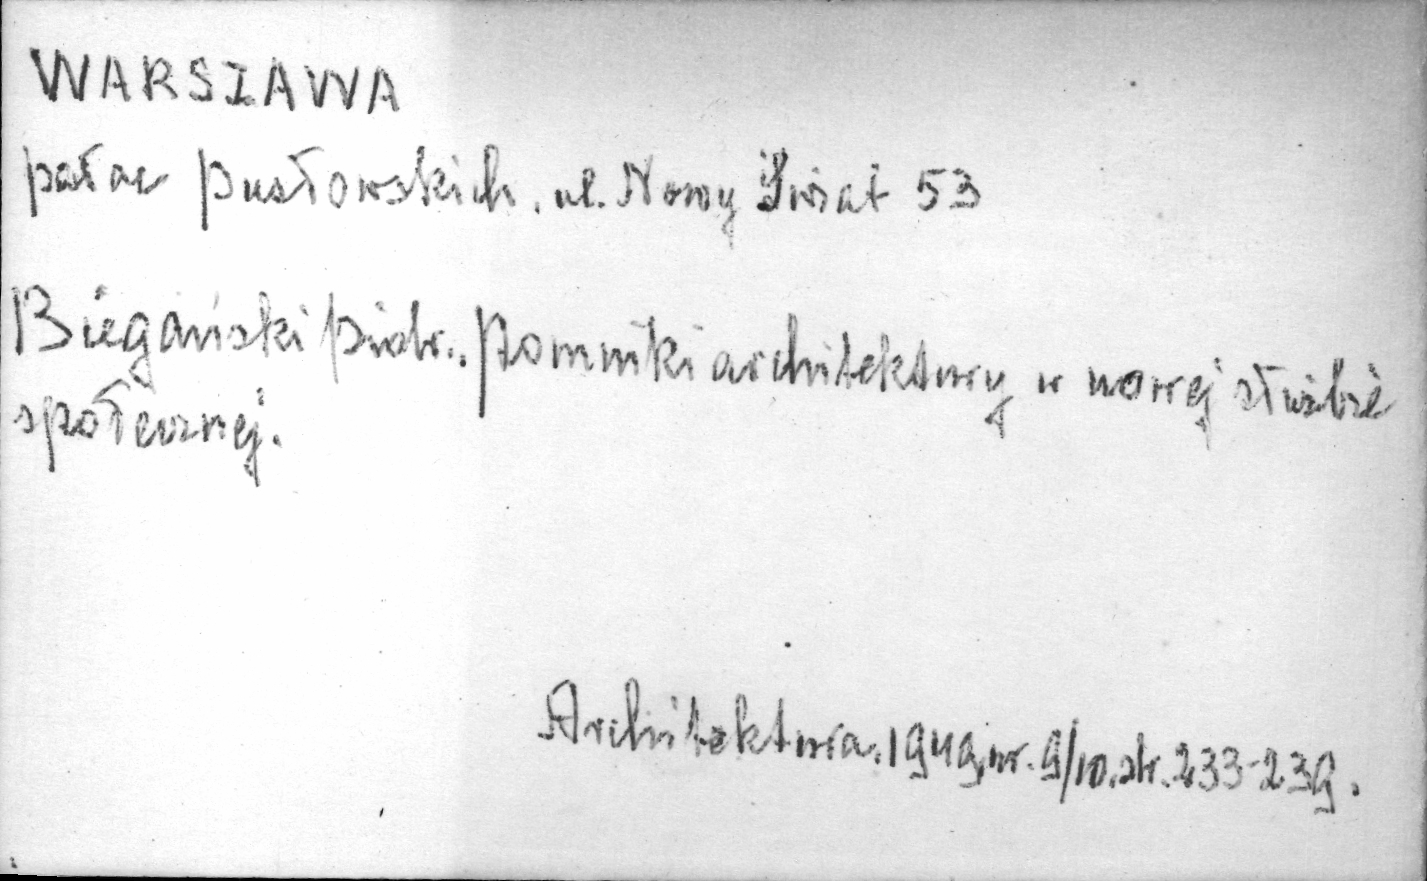 WARSZAWA
pałac Pusłowskich, ul. Nowy Świat 53
Biegański Piotr.. Pomniki architektury w nowej służbie
społecznej.
Architektura. 1949, nr. 9/10. str. 233-239.